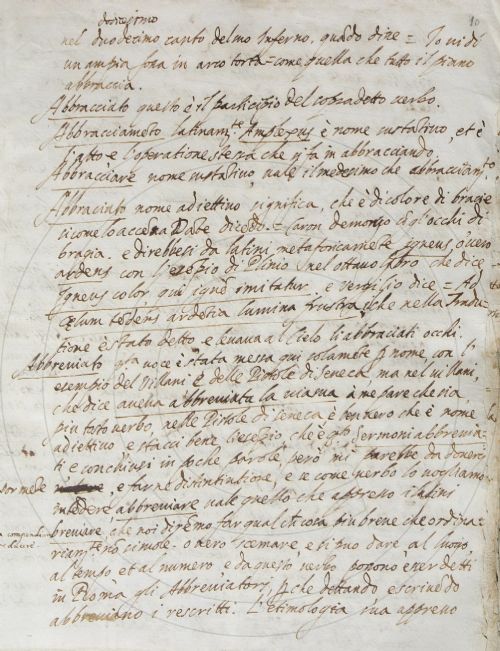 dodicesimo
10
nel duodecimo canto del suo Inferno. quãdo dice = Io vidi
un ampia fossa in arco torta = come quella che tutto il piano
abbraccia.
Abbracciato questo è il participio del sopradetto verbo.
Abbracciamẽto latinam.te Amplexus è nome sustãtivo, et è
l'atto e l'operatione stessa che si fa in abbracciando,
Abbracciare nome sustãtivo, vale il medesimo che abbracciam.to
Abbraciato nome adiettivo significa, che è di colore di bragie
sicome lo accẽna Dãte dicẽdo = Caron demonio cõ gl'occhi di
bragia. e direbbesi da latini metaforicamẽte igneus, o vero
ardens con l'esẽpio di Plinio nel ottavo libro che dice
Igneus color qui ignẽ imitatur. e Vergilio dice = Ad
cœlum tẽdens ardẽtia lumina frustra, che nella tradu-
tione è stato detto e levava al Cielo li abbraciati occhi.
Abbreviato q̃sta voce è stata messa qui solamẽte p nome, con l'
esempio del Villani e delle Pistole di Seneca, ma nel Villani,
che dice avella abbreviata la viama à me pare che sia
più tosto verbo, nelle Pistole di Seneca è bẽ vero che è nome
adiettivo e sta cui bene l'esẽpio, che è q̃sto Sermoni abbrevia-
ti e conchiusi in poche parole, però mi parebbe da doversi
e farne distintione, e se come verbo lo vogliamo
intẽdere abbreviare vale quello che appresso i latini
breviare, che noi diremo far qual che cosa più breve che ordina-
riam.te o vero scemare, e si può dare al luogo,
al tempo et al numero, e da questo verbo possono esser detti
in Roma gli Abbreviatori, p che dettando e scrivẽdo
abbreviano i rescritti. L'etimologia sua appresso